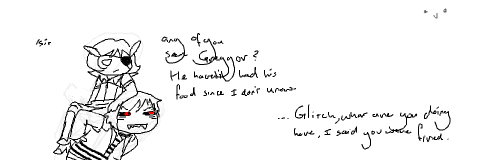 any of you
seen Greggor?
He hasn't had his
food since I don't know.
... Glitch, what are you doing
here, I said you were fired.